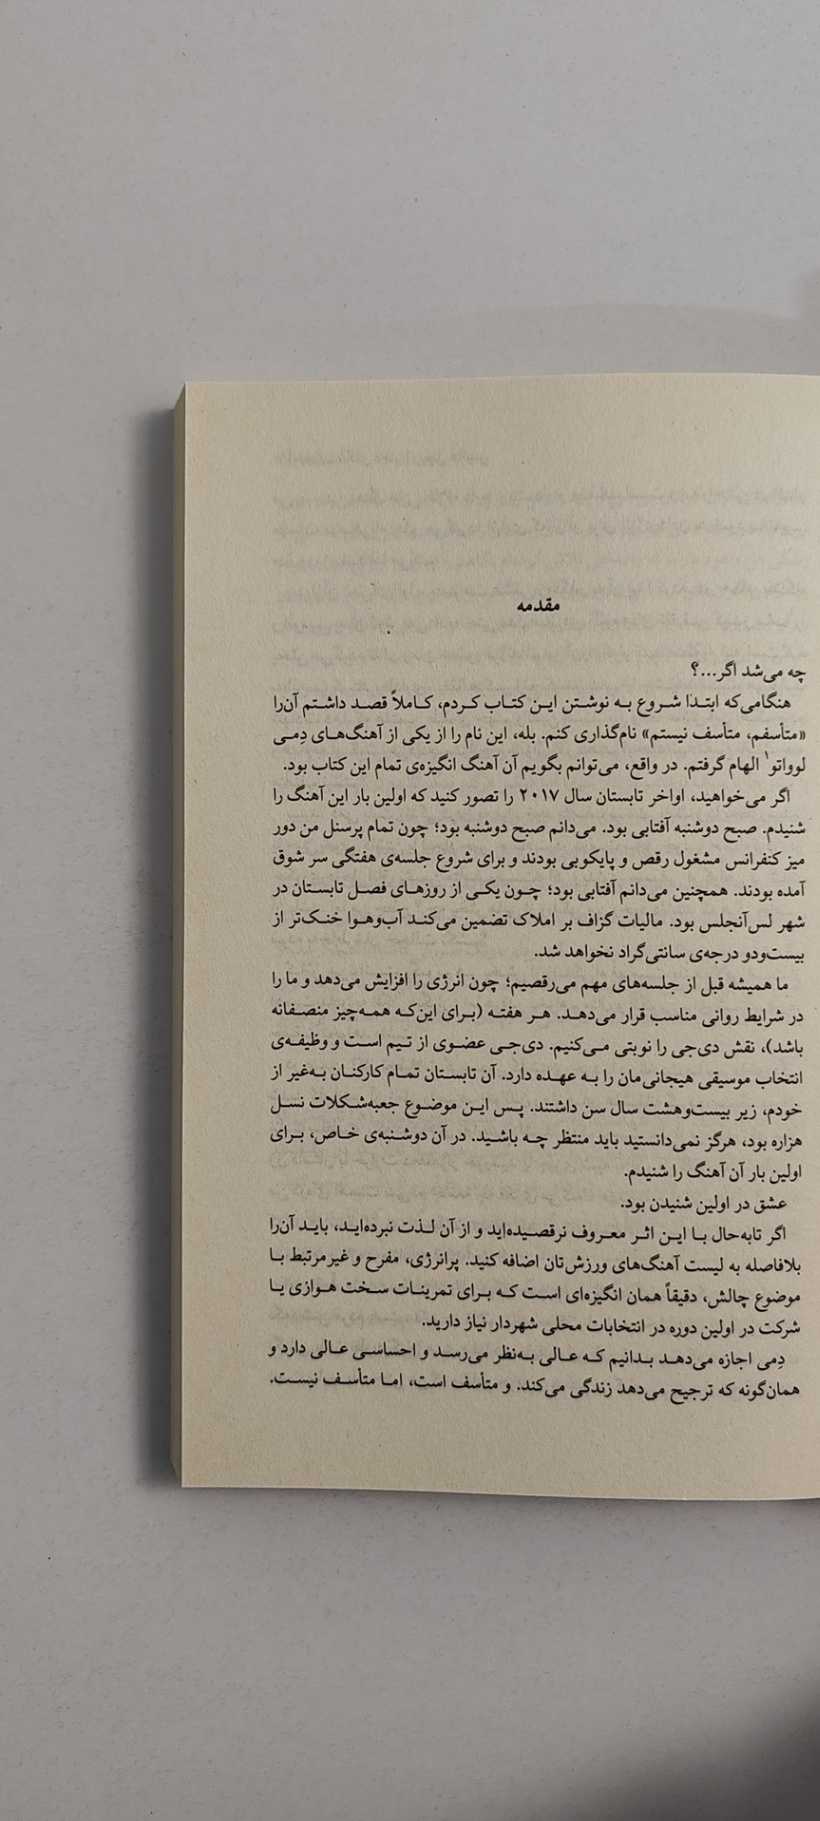 مقدمه
چه می‌شد اگر...؟
هنگامی‌که ابتدا شروع به نوشتن این کتاب کردم، کاملاً قصد داشتم آن‌را
«متأسفم، متأسف نیستم» نام‌گذاری کنم. بله، این نام را از یکی از آهنگ‌های دِمی
لوواتو۱ الهام گرفتم. در واقع، می‌توانم بگویم آن آهنگ انگیزه‌ی تمام این کتاب بود.
اگر می‌خواهید، اواخر تابستان سال ۲۰۱۷ را تصور کنید که اولین بار این آهنگ را
شنیدم. صبح دوشنبه آفتابی بود. می‌دانم صبح دوشنبه بود؛ چون تمام پرسنل من دور
میز کنفرانس مشغول رقص و پایکوبی بودند و برای شروع جلسه‌ی هفتگی سر شوق
آمده بودند. همچنین می‌دانم آفتابی بود؛ چون یکی از روزهای فصل تابستان در
شهر لس‌آنجلس بود. مالیات گزاف بر املاک تضمین می‌کند آب‌وهوا خنک‌تر از
بیست‌ودو درجه‌ی سانتی‌گراد نخواهد شد.
ما همیشه قبل از جلسه‌های مهم می‌رقصیم؛ چون انرژی را افزایش می‌دهد و ما را
در شرایط روانی مناسب قرار می‌دهد. هر هفته (برای این‌که همه‌چیز منصفانه
باشد)، نقش دی‌جی را نوبتی می‌کنیم. دی‌جی عضوی از تیم است و وظیفه‌ی
انتخاب موسیقی هیجانی‌مان را به عهده دارد. آن تابستان تمام کارکنان به‌غیر از
خودم، زیر بیست‌وهشت سال سن داشتند. پس این موضوع جعبه‌شکلات نسل
هزاره بود، هرگز نمی‌دانستید باید منتظر چه باشید. در آن دوشنبه‌ی خاص، برای
اولین بار آن آهنگ را شنیدم.
عشق در اولین شنیدن بود.
اگر تابه‌حال با این اثر معروف نرقصیده‌اید و از آن لذت نبرده‌اید، باید آن‌را
بلافاصله به لیست آهنگ‌های ورزش‌تان اضافه کنید. پرانرژی، مفرح و غیرمرتبط با
موضوع چالش، دقیقاً همان انگیزه‌ای است که برای تمرینات سخت هوازی یا
شرکت در اولین دوره در انتخابات محلی شهردار نیاز دارید.
دِمی اجازه می‌دهد بدانیم که عالی به‌نظر می‌رسد و احساسی عالی دارد و
همان‌گونه که ترجیح می‌دهد زندگی می‌کند. و متأسف است، اما متأسف نیست.